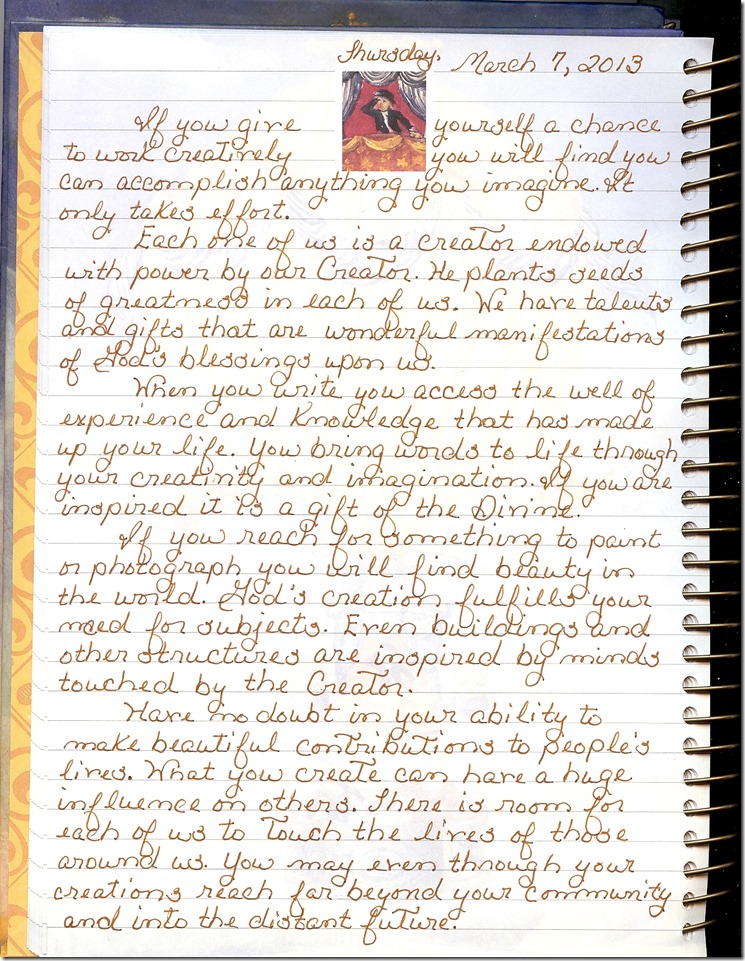 Thursday, March 7, 2013
If you give yourself a chance
to work creatively you will find you
can accomplish anything you imagine. It
only takes effort.
Each one of us is a creator endowed
with power by our Creator. He plants seeds
of greatness in each of us. We have talents
and gifts that are wonderful manifestations
of God's blessings upon us.
When you write you access the well of
experience and knowledge that has made
up your life. You bring words to life through
your creativity and imagination. If you are
inspired it is a gift of the Divine.
If you reach for something to paint
or photograph you will find beauty in
the world. God's creation fulfills your
need for subjects. Even buildings and
other structures are inspired by minds
touched by the Creator.
Have no doubt in your ability to
make beautiful contributions to people's
lives. What you create can have a huge
influence on others. There is room for
each of us to touch the lives of those
around us. You may even through your
creations reach far beyond your community
and into the distant future.